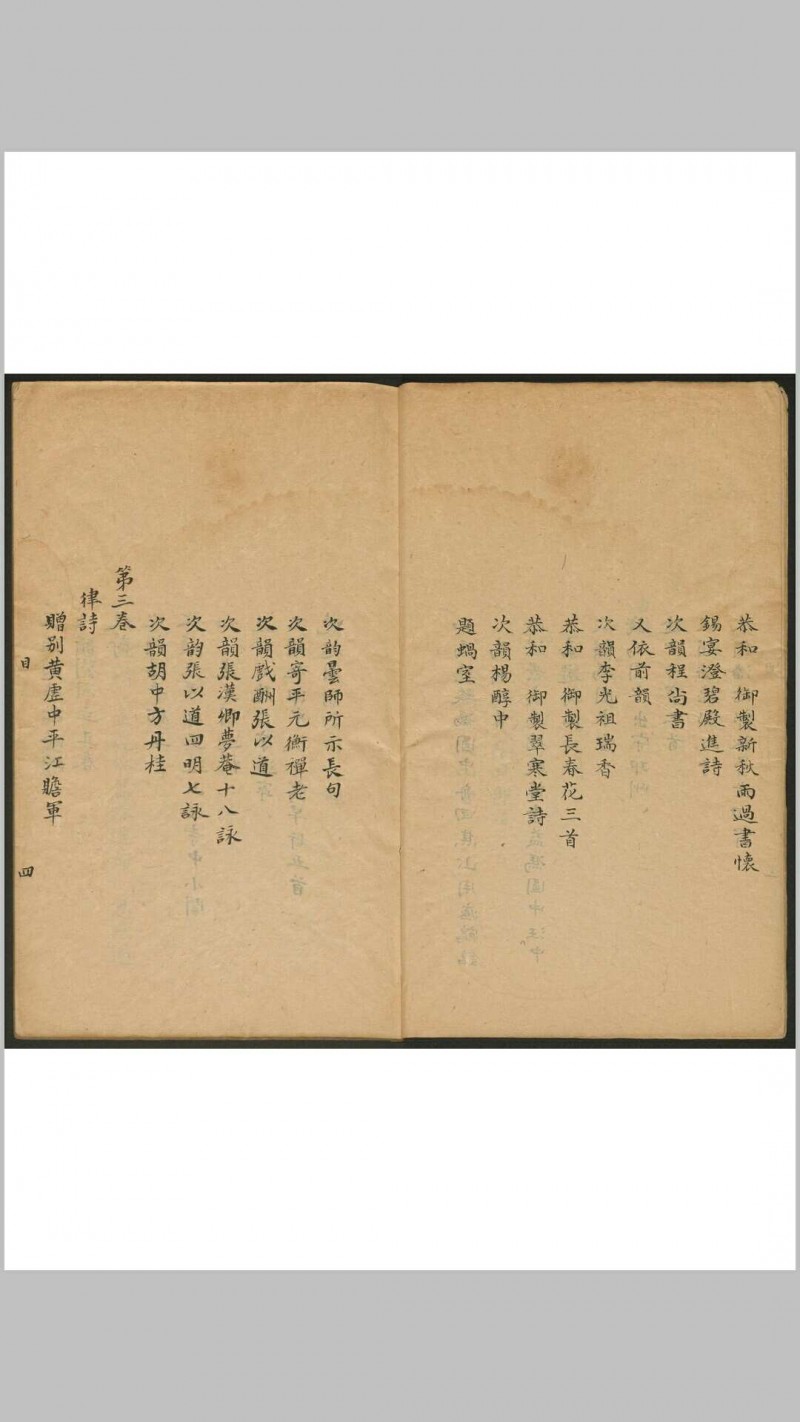 恭和　御製新秋雨過書懷
錫宴澄碧殿進詩
次韻程尚書
又依前韻
次韻李光祖瑞香
恭和　御製長春花三首
恭和　御製翠寒堂詩
次韻楊醇中
題蝸室
次韵曇師所示長句
次韻寄平元衡禪老
次韻戲酬張以道
次韻張漢卿夢菴十八詠
次韵張以道四明七詠
次韻胡中方丹桂
第三卷
律詩
贈別黄虚中平江贍軍
目　四